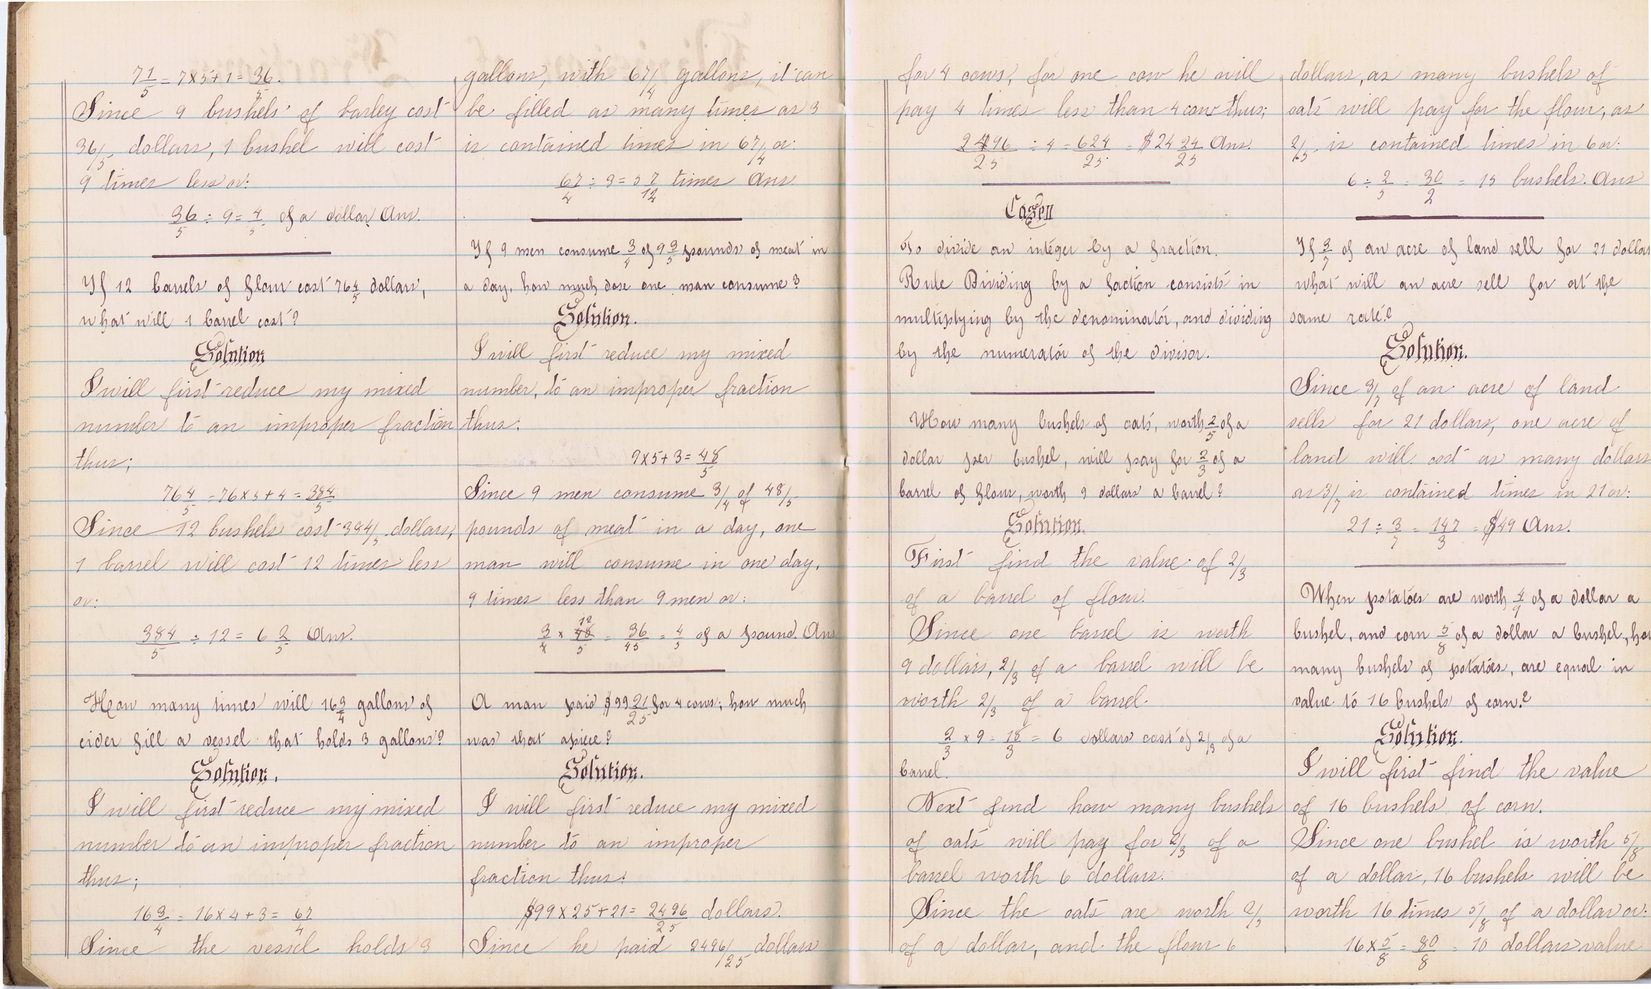 7 1/5 = 7x5+1 = 36/5.
Since 9 bushels of barley cost
36/5 dollars, 1 bushel will cost
9 times less or:
36/5 ÷ 9 = 4/5 of a dollar Ans.
If 12 barrels of flour cost 76 4/5 dollars,
what will 1 barrel cost?
Solution
I will first reduce my mixed
number to an improper fraction
thus;
76 4/5 = 76x5+4 = 384/5
Since 12 bushels cost 384/5 dollars,
1 barrel will cost 12 times less
or:
384/5 ÷ 12 = 6 2/5 Ans.
How many times will 16 3/4 gallons of
cider fill a vessel that holds 3 gallons?
Solution.
I will first reduce my mixed
number to an improper fraction
thus;
16 3/4 = 16x4+3 = 67/4
Since the vessel holds 3
gallons, with 67/4 gallons, it can
be filled as many times as 3
is contained times in 67/4 or:
67/4 ÷ 3 = 5 7/12 times Ans
If 9 men consume 3/4 of 9 3/5 pounds of meat in
a day, how much dose one man consume?
Solution.
I will first reduce my mixed
number, to an improper fraction
thus:
9x5+3 = 48/5
Since 9 men consume 3/4 of 48/5
pounds of meat in a day, one
man will consume in one day,
9 times less than 9 men or:
3/4 x 48/5 = 36/45 = 4/5 of a pound Ans
A man paid $99 21/25 for 4 cows; how much
was that apiece?
Solution.
I will first reduce my mixed
number to an improper
fraction thus:
$99x25+21 = 2496/25 dollars.
Since he paid 2496/25 dollars
for 4 cows, for one cow he will
pay 4 times less than 4 cow thus;
2496/25 ÷ 4 = 624/25 = $24 24/25 Ans.
Case II
To divide an integer by a fraction.
Rule Dividing by a faction consists in
multiplying by the denominator, and dividing
by the numerator of the divisor.
How many bushels of oats, worth 2/5 of a
dollar per bushel, will pay for 2/3 of a
barrel of flour, worth 9 dollars a barrel?
Solution.
First find the value of 2/3
of a barrel of flour.
Since one barrel is worth
9 dollars, 2/3 of a barrel will be
worth 2/3 of a barrel.
2/3 x 9 = 18/3 = 6 dollars cost of 2/3 of a
barrel.
Next find how many bushels
of oats will pay for 2/3 of a
barrel worth 6 dollars.
Since the oats are worth 2/5
of a dollar, and the flour 6
dollars, as many bushels of
oats will pay for the flour, as
2/5 is contained times in 6 or:
6 ÷ 2/5 = 30/2 = 15 bushels. Ans
If 3/7 of an acre of land sell for 21 dollars
what will an acre sell for at the
same rate?
Solution.
Since 3/7 of an acre of land
sells for 21 dollars, one acre of
land will cost as many dollars
as 3/7 is contained times in 21 or:
21 ÷ 3/7 = 147/3 = $49 Ans.
When potatoes are worth 4/9 of a dollar a
bushel, and corn 5/8 of a dollar a bushel, how
many bushels of potatoes, are equal in
value to 16 bushels of corn?
Solution.
I will first find the value
of 16 bushels of corn.
Since one bushel is worth 5/8
of a dollar, 16 bushels will be
worth 16 times 5/8 of a dollar or:
16x5/8 = 80/8 = 10 dollars value